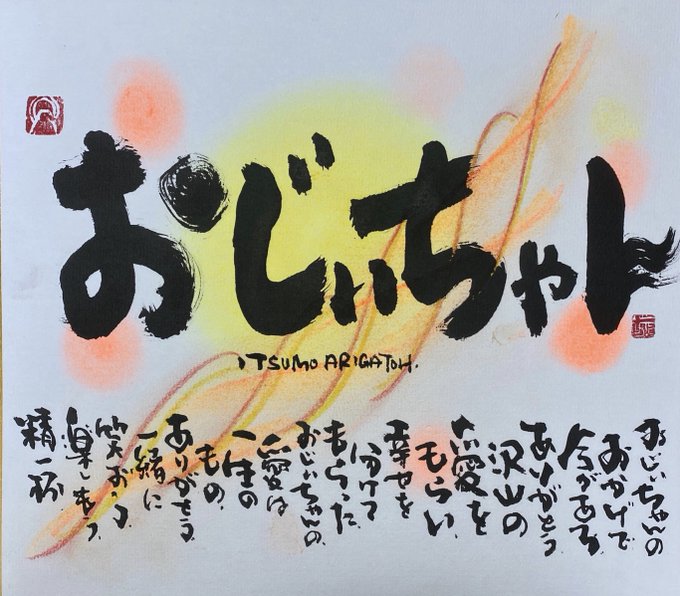 おじいちゃん
ITSUMO ARIGATOH.
おじいちゃんの
おかげで
今がある
ありがとう
沢山の
愛を
もらい
幸せを
分けて
もらった
おじいちゃんの
愛は
一生の
もの
ありがとう
一緒に
笑おう
楽しもう
精一杯